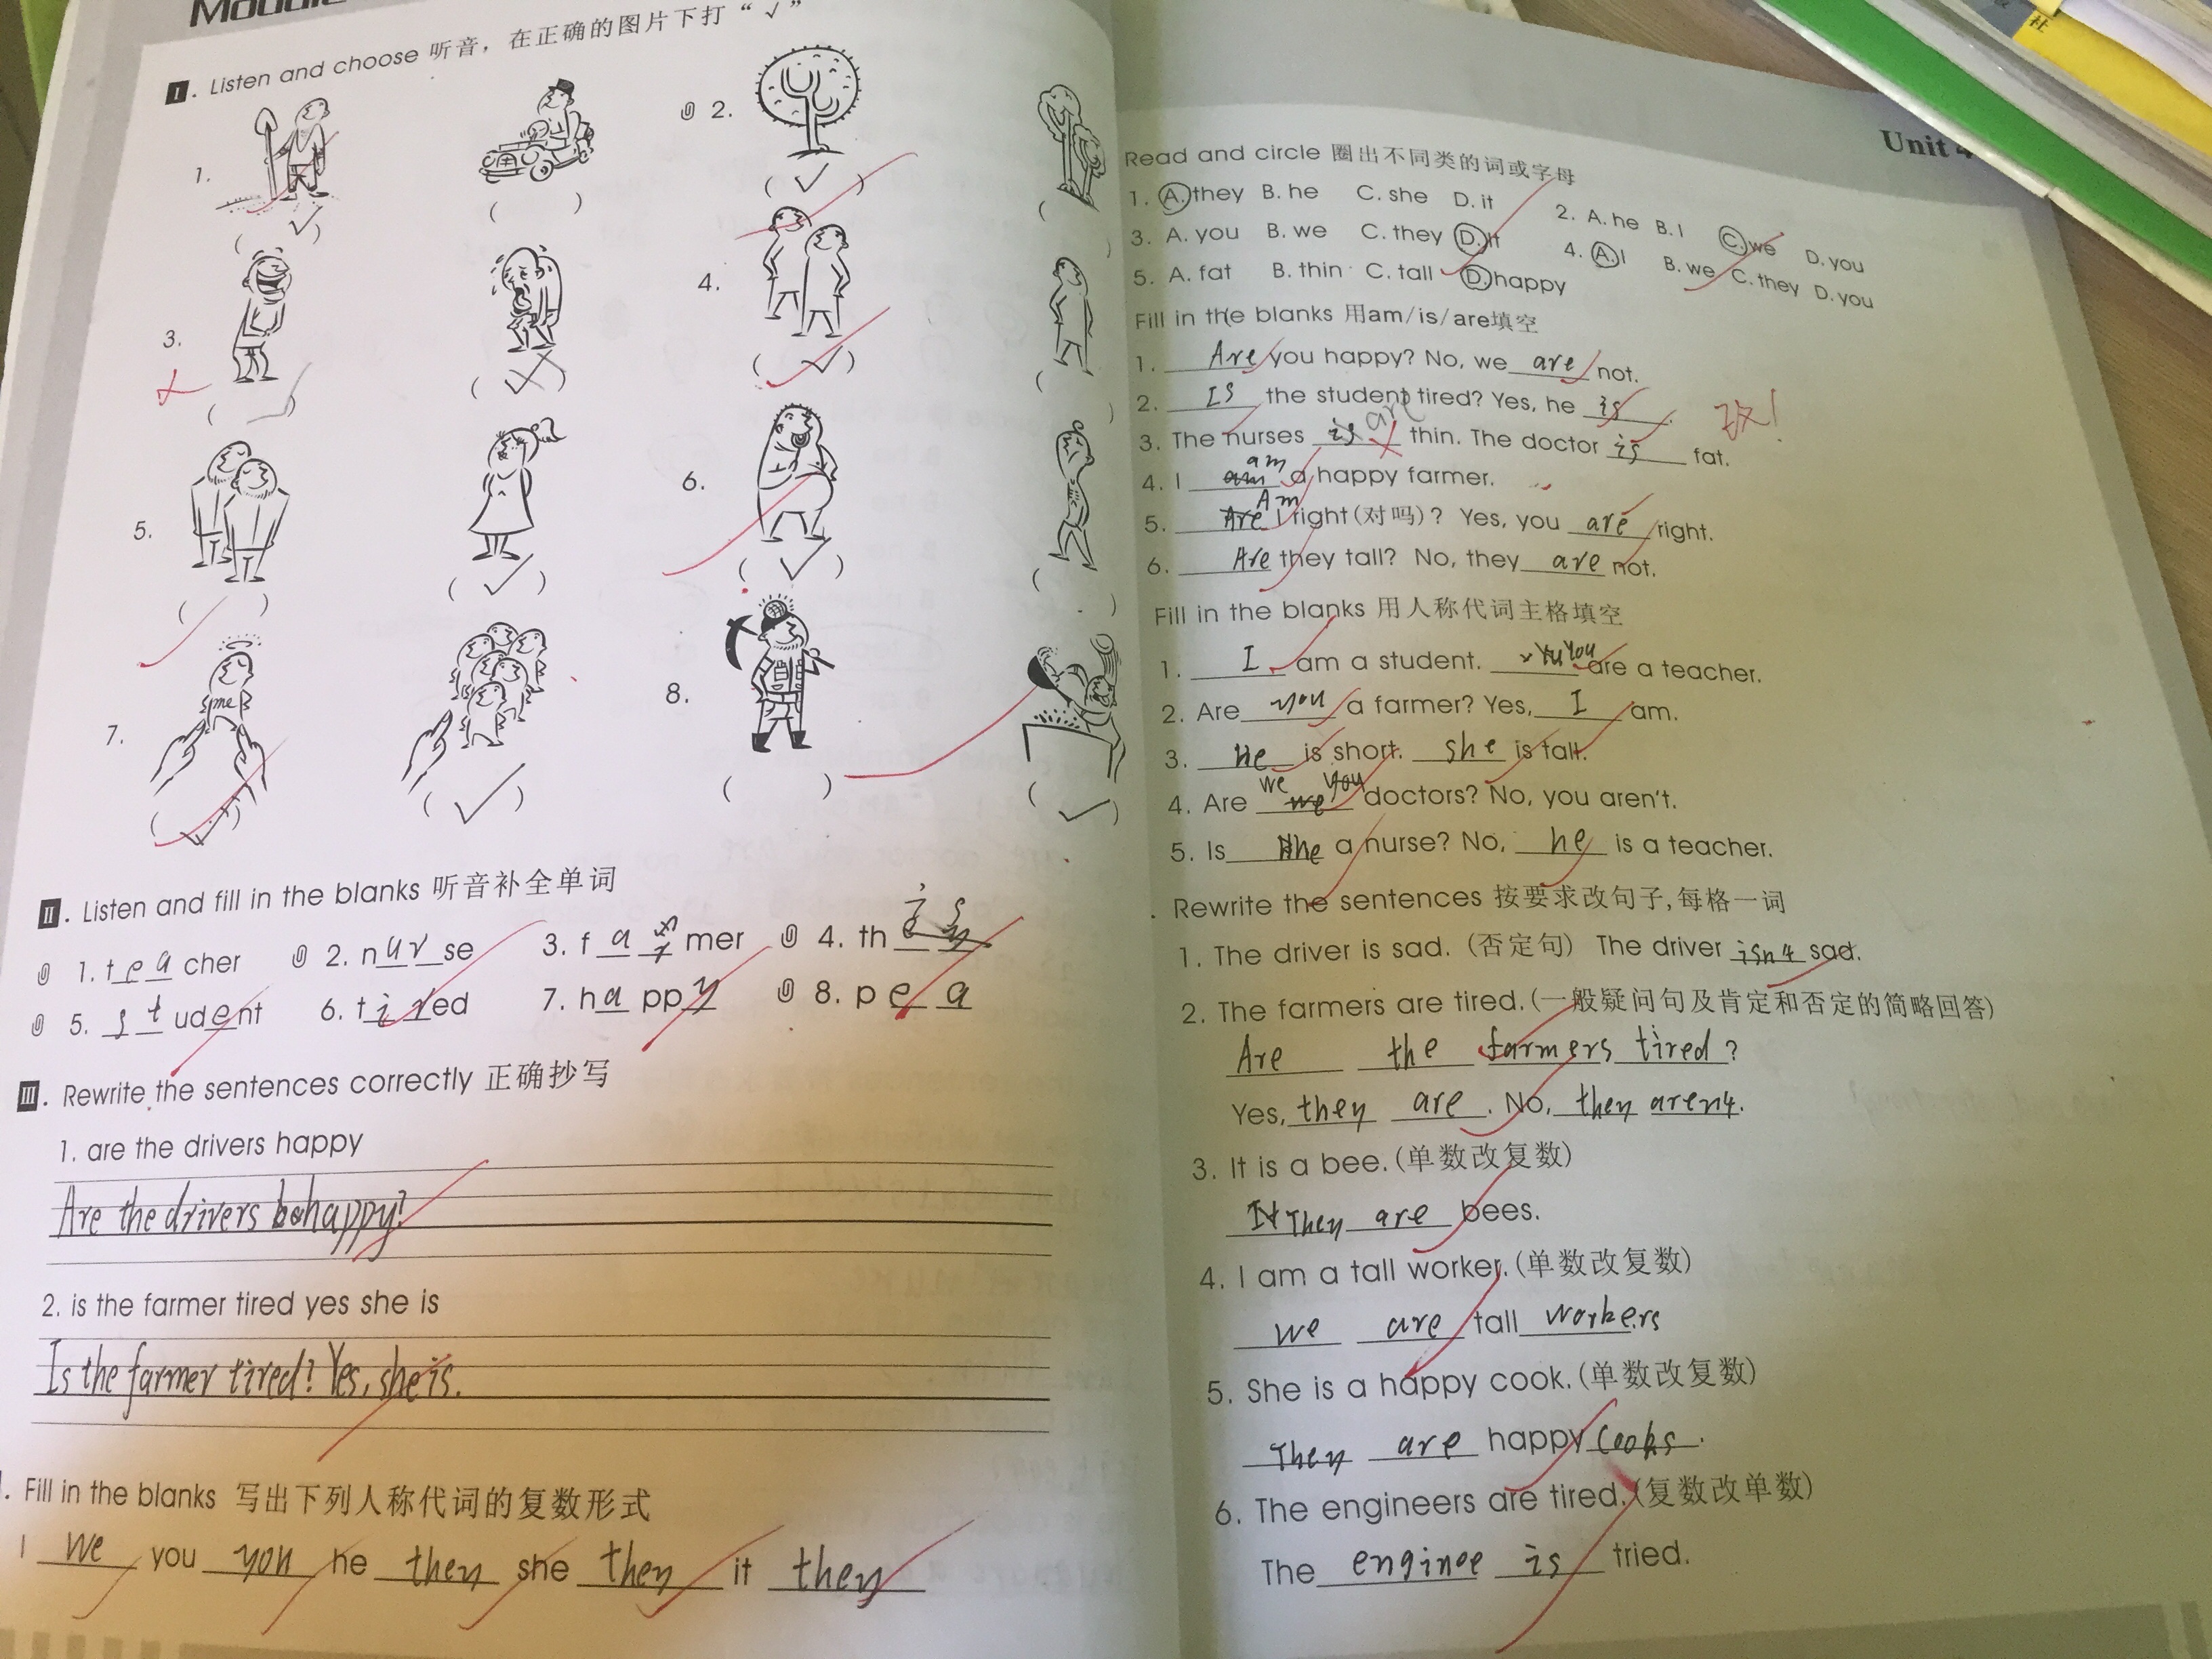 Ⅰ. Listen and choose 听音，在正确的图片下打“√”
1. (√) ( ) 2. (√) (
3. ( ) (√) 4. (√) (
5. ( ) (√) 6. (√) (
me
7. (√) (√) 8. ( ) (√)
Ⅱ. Listen and fill in the blanks 听音补全单词
1. teacher 2. nurse 3. farmer 4. this
5. student 6. tired 7. happy 8. pea
Ⅲ. Rewrite the sentences correctly 正确抄写
1. are the drivers happy
Are the drivers happy?
2. is the farmer tired yes she is
Is the farmer tired? Yes, she is.
. Fill in the blanks 写出下列人称代词的复数形式
I we you you he they she they it they
社
Unit 4
Read and circle 圈出不同类的词或字母
1. A. they B. he C. she D. it 2. A. he B. I C. we D. you
3. A. you B. we C. they D. it 4. A. I B. we C. they D. you
5. A. fat B. thin C. tall D. happy
Fill in the blanks 用am/is/are填空
1. Are you happy? No, we are not.
2. Is the student tired? Yes, he is.
3. The nurses is are thin. The doctor is fat. 改!
4. I am am a happy farmer.
5. Are Am I right(对吗)? Yes, you are right.
6. Are they tall? No, they are not.
Fill in the blanks 用人称代词主格填空
1. I am a student. You are a teacher.
2. Are you a farmer? Yes, I am.
3. He is short. she is tall.
4. Are we we you doctors? No, you aren't.
5. Is she a nurse? No, he is a teacher.
. Rewrite the sentences 按要求改句子,每格一词
1. The driver is sad. (否定句) The driver isn't sad.
2. The farmers are tired. (一般疑问句及肯定和否定的简略回答)
Are the farmers tired?
Yes, they are. No, they aren't.
3. It is a bee. (单数改复数)
It They are bees.
4. I am a tall worker. (单数改复数)
we are tall workers
5. She is a happy cook. (单数改复数)
They are happy cooks.
6. The engineers are tired. (复数改单数)
The enginee is tried.